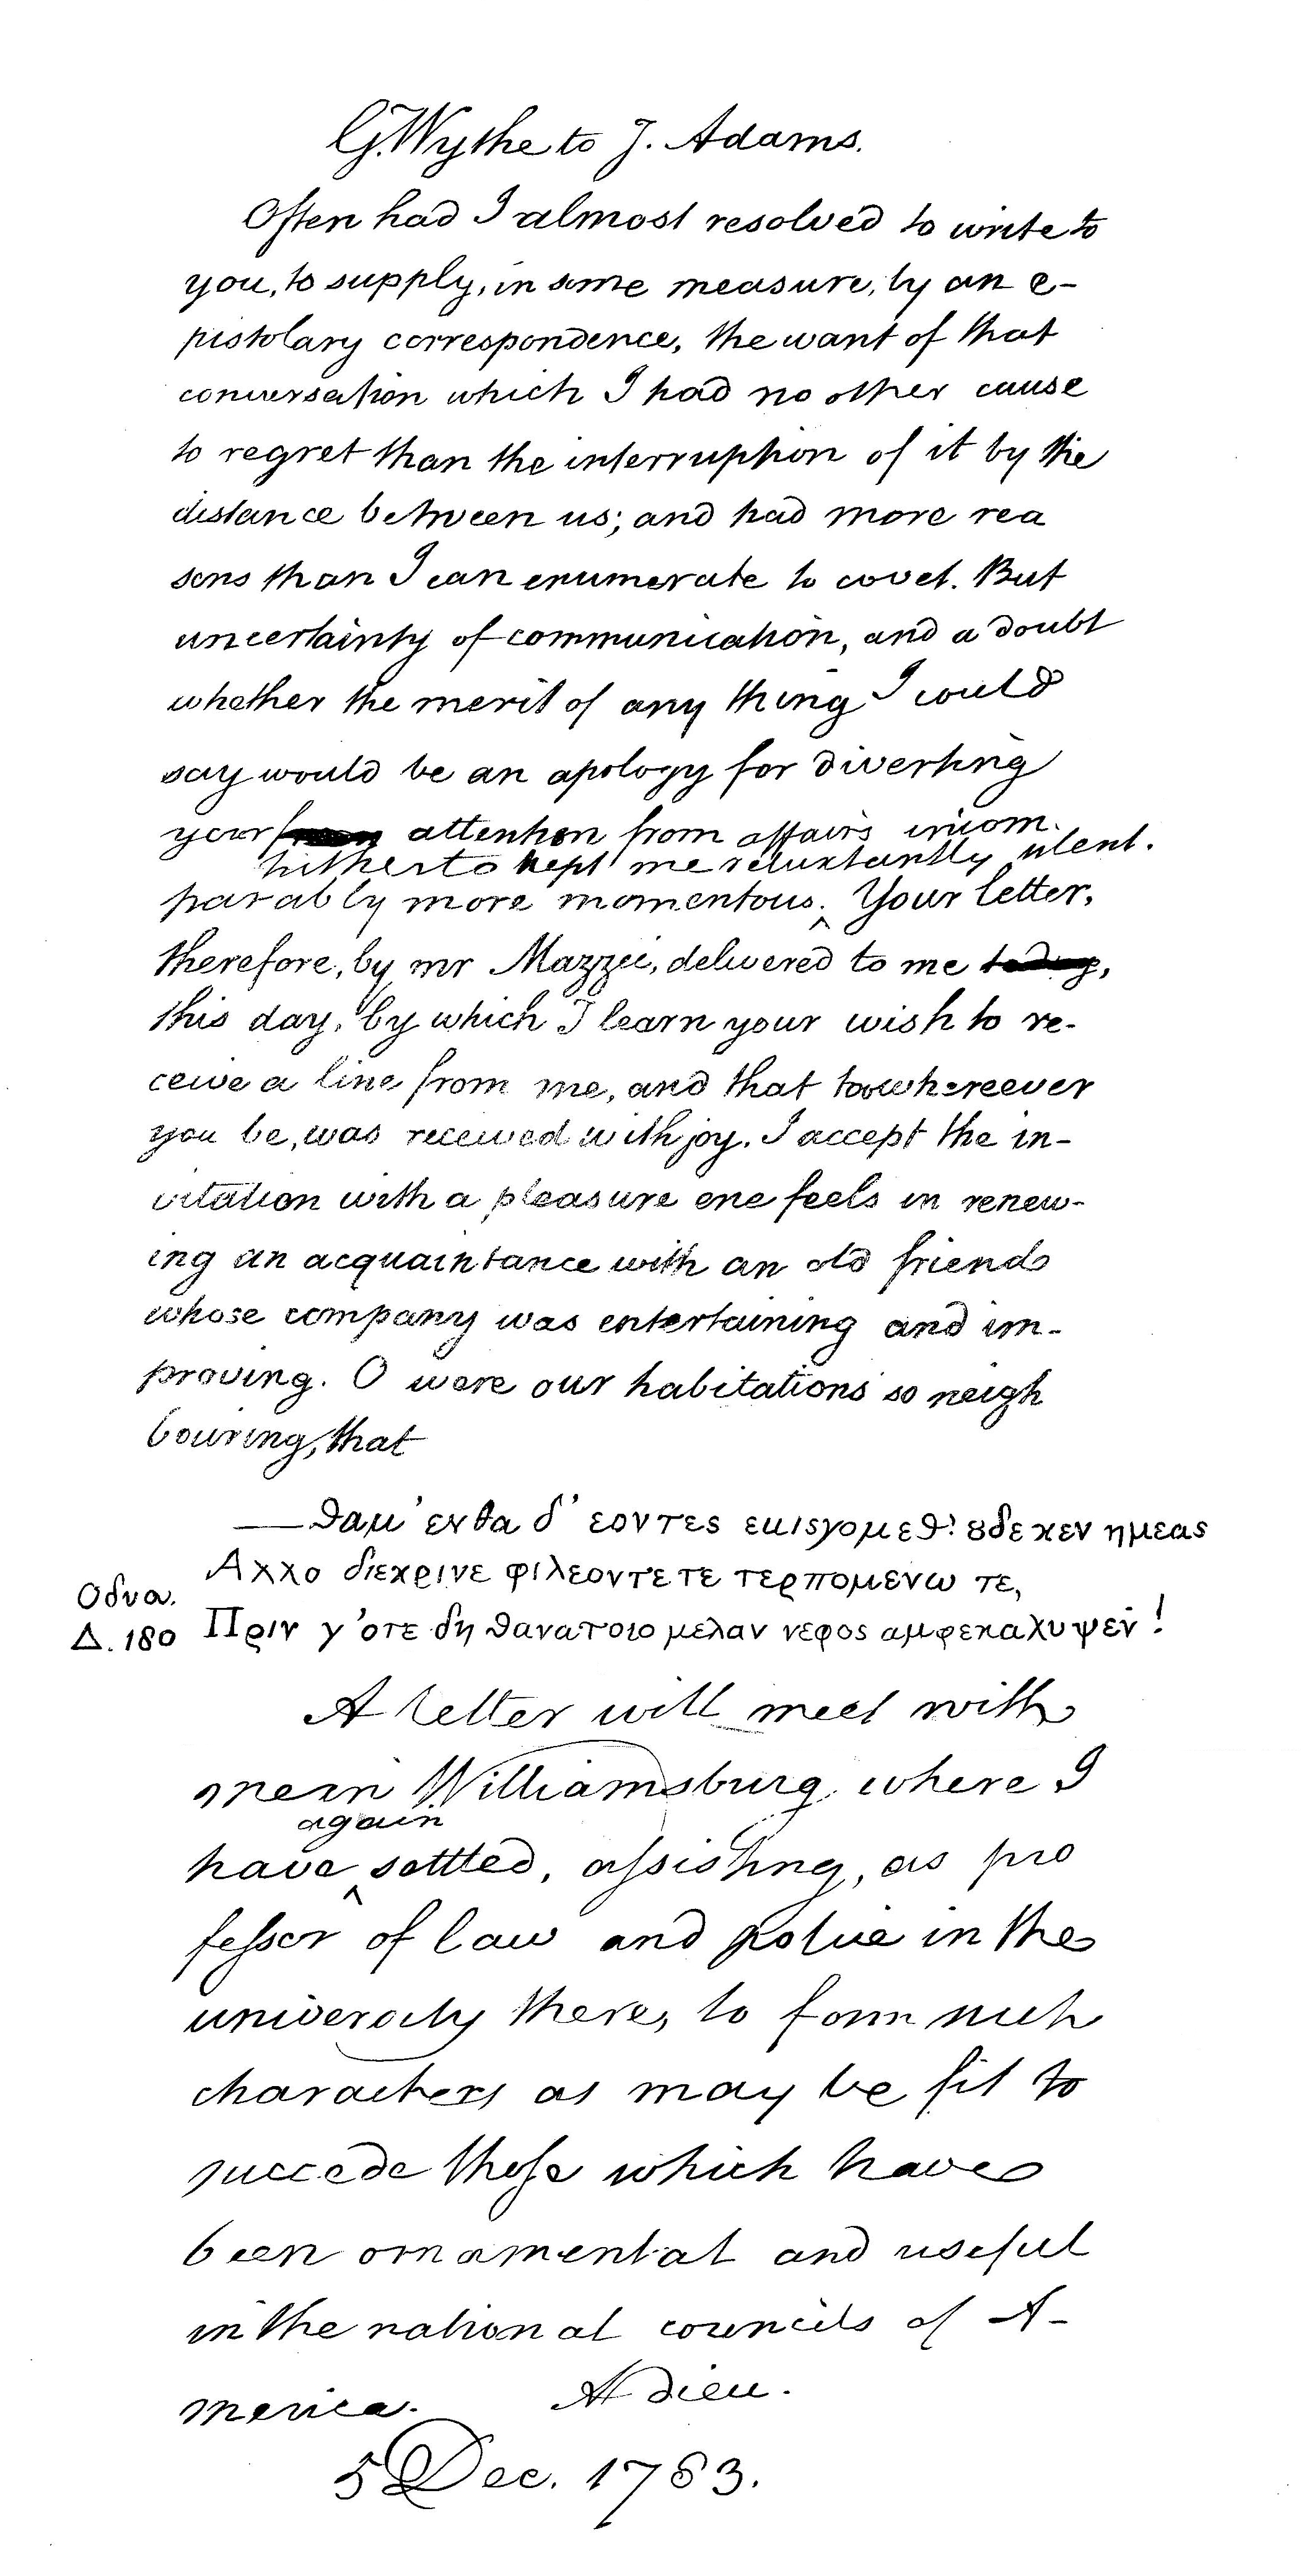 G. Wythe to J. Adams.
Often had I almost resolved to write to
you, to supply, in some measure, by an e-
pistolary correspondence, the want of that
conversation which I had no other cause
to regret than the interruption of it by the
distance between us; and had more rea
sons than I can enumerate to covet. But
uncertainty of communication, and a doubt
whether the merit of any thing I could
say would be an apology for diverting
your attention from affairs incom-
hitherto kept me reluctantly silent.
parably more momentous. ‸ Your letter,
therefore, by mr Mazzei, delivered to me today,
this day, by which I learn your wish to re-
ceive a line from me, and that toowhereever
you be, was received with joy. I accept the in-
vitation with a pleasure one feels in renew-
ing an acquaintance with an old friend
whose company was entertaining and im-
proving. O were our habitations so neigh
bouring, that
—θαμ' ενθα δ' εοντες εμισγομεθ' ȣδε κεν ημεας
Αλλο διεκρινε φιλεοντε τε τερπομενω τε,
Οδυσ.
Δ. 180 Πριν γ' οτε δη θανατοιο μελαν νεφος αμφεκαλυψεν!
A letter will meet with
me in Williamsburg where I
again
have ‸ settled, assisting, as pro
fessor of law and police in the
university there, to form such
characters as may be fit to
succede those which have
been ornamental and useful
in the national councils of A-
merica. Adieu.
5 Dec. 1783.